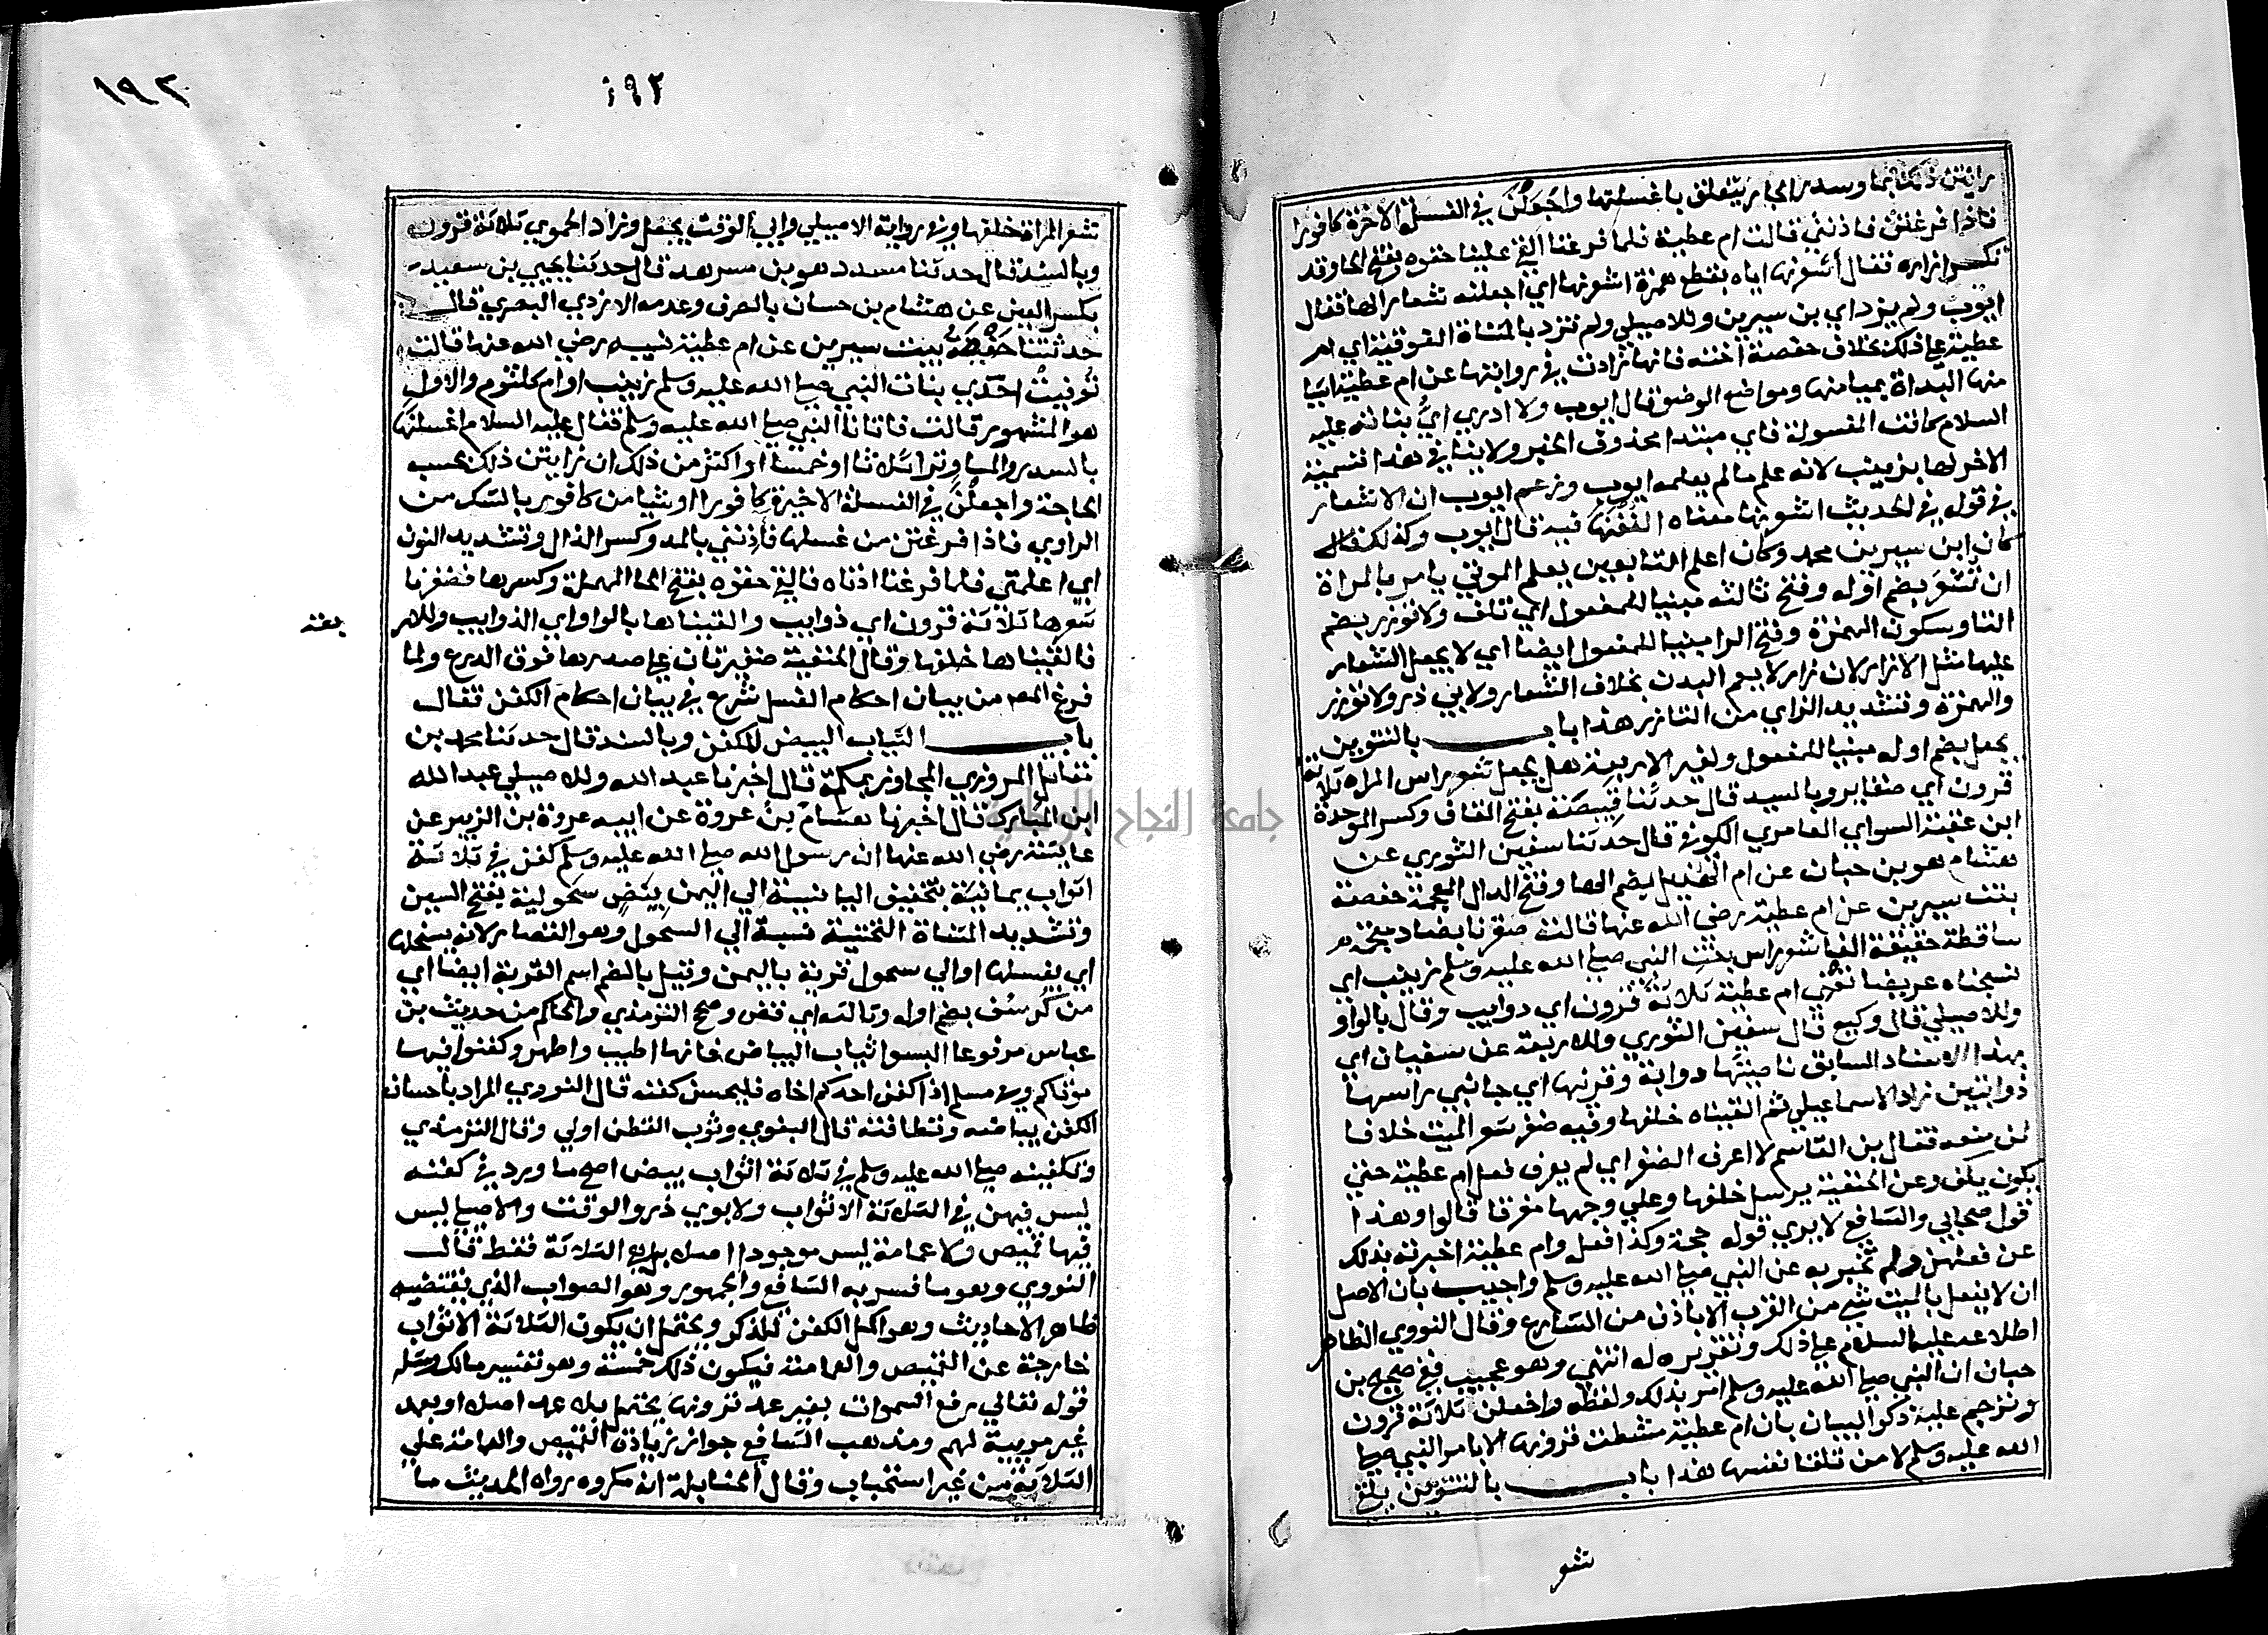 رايتن ذلك بما وسدر الجار يتعلق باغسلتها واجعلن في الغسلة الاخرة كافورا
فاذا فرغتن فاذنني قالت ام عطية فلما فرغنا القي علينا حقوه بفتح الحا وقد
تكسر ازاره فقال أشعرنها اياه بقطع همزة اشعرنها اي اجعلنه شعارا لها فقال
ايوب ولم يزد اي بن سيرين وللاصيلي ولم تزد بالمثناة الفوقية اي ام
عطية علي ذلك بخلاف حفصة اخته فانها زادت في روايتها عن ام عطية اشيا
منها البداة بميامنها ومواضع الوضو قال ايوب ولا ادري اي بناته عليه
السلام كانت المغسولة فاي مبتدا محذوف الخبر ولا ينافي هذا تسمية
الاخر لها بزينب لانه علم ما لم يعلمه ايوب وزعم ايوب ان الاشعار
في قوله في الحديث اشعرنها معناه الففنها فيه قال ايوب وكذلك
كان ابن سيرين محمد وكان اعلم التابعين بعلم الموتي يامر بالمراة
ان تشعر بضم اوله وفتح ثالثه مبنيا للمفعول اي تلف ولا توزر بضم
التا وسكون الهمزة وفتح الزا مبنيا للمفعول ايضا اي لا يجعل الشعار
عليها مثل الازار لان زار لا يعم البدن بخلاف الشعار ولابي ذر ولا توزر
والهمزة وتشديد الزاي من التازر هذا باب بالتنوين
يجعل بضم اوله مبنيا للمفعول ولغير الاربعة هل يجعل شعر راس المراه ثلاثة
قرون اي ضفاير وبالسند قال حدثنا قبيصة بفتح القاف وكسر الموحدة
ابن عقبة السواي العامري الكوفي قال حدثنا سفين الثوري عن
هشام هو بن حبان عن ام الهذيل بضم الها وفتح الدال المعجمة حفصة
بنت سيرين عن ام عطية رضي الله عنها قالت ضفرنا بضاد معجمة
ساقطة خفيفة الفا شعر راس بنت النبي صلي الله عليه وسلم زينب اي
نسجناه عريضا تعني ام عطية ثلاثة قرون اي دوايب وقال بالواو
وللاصيلي قال وكيع قال سفين الثوري وللاربعة عن سفيان اي
بهذا الاسناد السابق ناصيتها دوابة وقرنها اي جانبي راسها
ذوابتين زاد الاسماعيلي ثم القيناه خلفها وفيه ضفر شعر الميت خلافا
لمن منعه فقال بن القاسم لا اعرف الضفر اي لم يعرف فعل ام عطية حتي
يكون يلف وعن الحنفية يرسل خلفها وعلي وجهها مفرقا قالوا وهذا
قول صحابي والشافع لا يري قوله حجة وكذا فعله وام عطية اخبرت بذلك
عن فعلهن ولم تخبر به عن النبي صلي الله عليه وسلم واجيب بان الاصل
ان لا يفعل بالميت شي من القرب الا باذن من الشارع وقال النووي الظاهر
اطلاعه عليه السلام علي ذلك وتقريره له انتهي وهو عجيب ففي صحيح بن
حبان ان النبي صلي الله عليه وسلم امر بذلك ولفظه واجعلن ثلاثة قرون
وترجم عليه ذكر البيان بان ام عطية مشطت قرونها الا بامر النبي صلي
الله عليه وسلم لا من تلقا نفسها هذا باب بالتنوين يلقي
شعر
١٩٢
١٩٢
شعر المراة خلفها وفي رواية الاصيلي وابي الوقت يجعل وزاد الحموي ثلاثة قرون
وبالسند قال حدثنا مسدد هو بن مسرهد قال حدثنا يحيي بن سعيد
بكسر العين عن هشام بن حسان بالصرف وعدمه الازدي البصري قال
حدثتنا حفصة بنت سيرين عن ام عطية نسيبه رضي الله عنها قالت
توفيت احدي بنات النبي صلي الله عليه وسلم زينب او ام كلثوم والاول
هو المشهور قالت فاتانا النبي صلي الله عليه وسلم فقال عليه السلام اغسلنها
بالسدر والما وترا ثلاثا او خمسا او اكثر من ذلك ان رايتن ذلك بحسب
الحاجة واجعلن في الغسلة الاخيرة كافورا او شيا من كافور بالشك من
الراوي فاذا فرغتن من غسلها فآذنني بالمد وكسر الذال وتشديد النون
اي اعلمنني فلما فرغنا اذناه فالقي حقوه بفتح الحا المهملة وكسرها فضفرنا
شعرها ثلاثة قرون اي ذوايب والقيناها بالواو اي الذوايب وللار
بعة
فالقيناها خلفها وقال الحنفية ضفيرتان علي صدرها فوق الدرع ولما
فرغ المص من بيان احكام الغسل شرع في بيان احكام الكفن فقال
باب الثياب البيض للكفن وبالسند قال حدثنا محمد بن
مقاتل المروزي المجاور بمكة قال اخبرنا عبد الله وللاصيلي عبد الله
ابن المبارك قال اخبرنا هشام بن عروة عن ابيه عروة بن الزبير عن
عايشة رضي الله عنها ان رسول الله صلي الله عليه وسلم كفن في ثلاثة
اثواب يمانية بتخفيف اليا نسبة الي اليمن بيض سحولية بفتح السين
وتشديد المثناة التحتية نسبة الي السحول وهو القصار لانه يسحلها
اي يغسلها او الي سحول قرية باليمن وقيل بالضم اسم القرية ايضا اي
من كرسف بضم اوله وثالثه اي قطن وصحح الترمذي والحاكم من حديث بن
عباس مرفوعا البسوا ثياب البياض فانها اطيب واطهر وكفنوا فيها
موتاكم وفي مسلم اذا كفن احدكم اخاه فليحسن كفنه قال النووي المراد باحسان
الكفن بياضه ونظافته قال البغوي وثوب القطن اولي وقال الترمذي
وتكفينه صلي الله عليه وسلم في ثلاثة اثواب بيض اصح ما ورد في كفنه
ليس فيهن في الثلاثة الاثواب ولابوي ذر والوقت والاصيلي ليس
فيها قميص ولا عمامة ليس موجودا اصلا بل هي الثلاثة فقط قال
النووي وهو ما فسر به الشافع والجمهور وهو الصواب الذي يقتضيه
ظاهر الاحاديث وهو اكمل الكفن للذكر ويحتمل ان يكون الثلاثة الاثواب
خارجة عن القميص والعمامة فيكون ذلك خمسة وهو تفسير مالك ومثله
قوله تعالي رفع السموات بغير عمد ترونها يحتمل بلا عمد اصلا او بعمد
غير مريية لهم ومذهب الشافع جواز زيادة القميص والعمامة علي
الثلاثة من غير استحباب وقال الحنابلة انه مكروه رواه الحديث ما
جامعة النجاح الوطنية